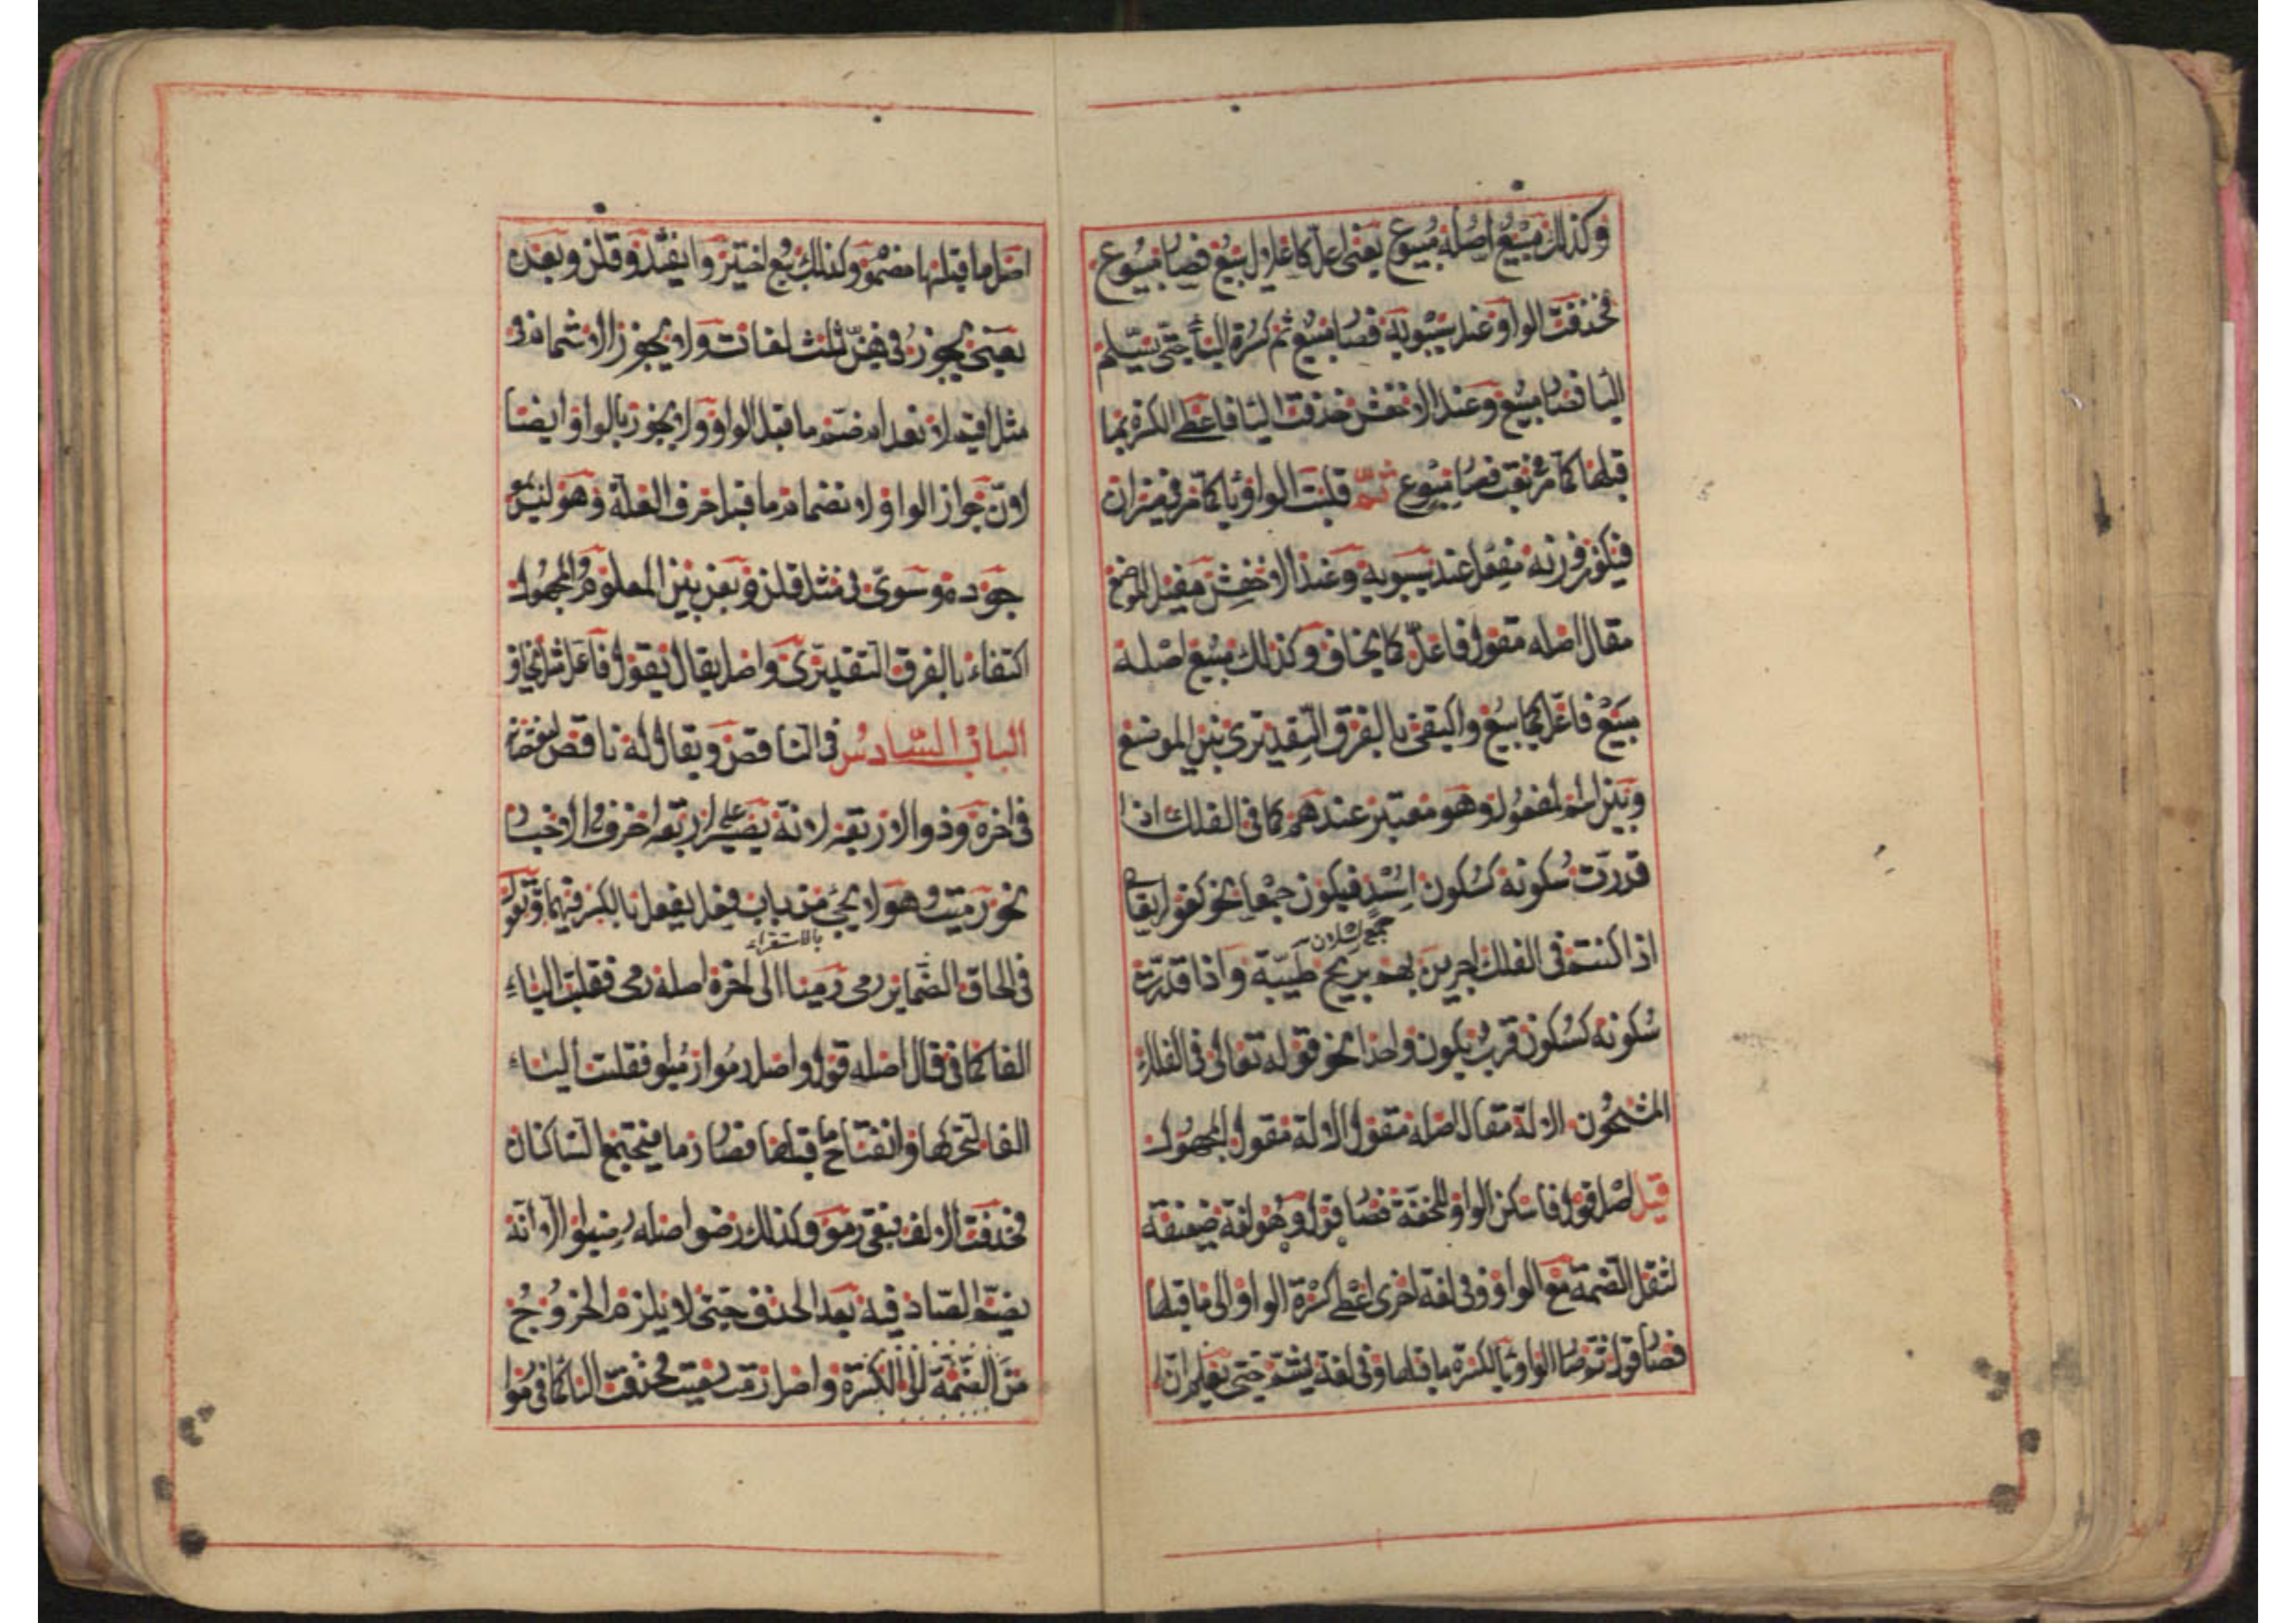 وكذلك مبيع اصله مبيوع يعنى اعل كاعلال يبيع فصار مبيوع
فحذفت الواو عند سيبويه فصار مبيع ثم كسرة البا حتى يسلم
اليا فصار مبيع وعند الاخفش حذفت اليا فاعطى الكسرة بما
قبلها كما مر فى بعت فصار مبوع ثم قلبت الواو يا كما مر فى ميزان
فيكون وزنه مفعل عند سيبويه وعند الاخفش مفيل الموضع
مقال اصله مقول فاعل كما يخاف وكذلك مبيع اصله
مبيع فاعل كما يبيع واكتفى بالفرق التقديرى بين الموضع
وبين اسم المفعول وهو معتبر عندهم كما فى الفلك اذا
قدرت سكونه كسكون اسد فيكون جمعا نحو كقوله تعالى
اذا كنتم فى الفلك وجرين بهم بريح طيبة واذا قدرت
سكونه كسكون قرب يكون واحدا نحو قوله تعالى فى الفلك
المشحون الالة مقال اصله مقول الالة مقول المجهول
قيل اصله قول فاسكن الواو للخفة فصار قول وهو لغة ضعيفة
لثقل الضمة مع الواو وفى لغة اخرى اعطى كسرة الواو الى ما قبلها
فصار قول ثم صار الواو يا لكسرة ما قبلها وفى لغة يشم حتى يعلم ان
اصل ما قبلها مضموم وكذلك بيع اختير وانقيد وقلن وبعن
يعنى يجوز فى هن ثلث لغات ولا يجوز الاشمام فى
مثل اقيم لانعدام ضم ما قبل الواو ولا يجوز بالواو ايضا
لان جواز الواو لانضمام ما قبل حرف العلة وهو ليس
بموجود وسوى فى مثل قلن وبعن بين المعلوم والمجهول
اكتفاء بالفرق التقديرى واصل يقال يقول فاعل مثل يخاف
الباب السادس فى الناقص ويقال له ناقص لنقصانه
فى اخره وذو الاربعة لانه يصير على اربعة احرف فى الاخبار
نحو رميت وهو لا يجئ من باب فعل يفعل بالكسر فيهما وتقول
بالاستقراء
فى الحاق الضمائر رمى رميا الى اخره اصله رمى فقلبت الياء
الفا كما فى قال اصله قول واصل رموا رميوا فقلبت الياء
الفا لتحركها وانفتاح ما قبلها فصار رماو فيجتمع الساكنان
فحذفت الالف فبقى رمو وكذلك رضوا اصله رضيوا الا انه
يضم الضاد فيه بعد الحذف حتى لا يلزم الخروج
من الضمة الى الكسرة واصل رمت رميت فحذفت اليا كما فى رموا